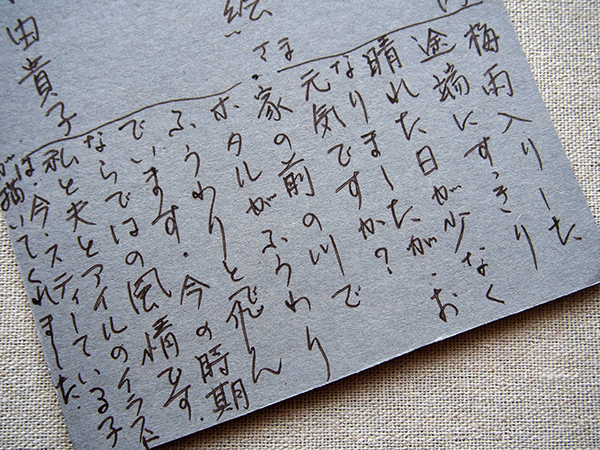 絵さま
由貴子
梅雨入りした
途端にすっきり
晴れた日が少なく
なりましたが、お
元気ですか?
家の前の川で
ホタルがふうわり
ふうわりと飛ん
でいます。今の時期
ならではの風情です。
私と夫とアイルのイラスト
は、今、スティーている子
が描いてくれました。